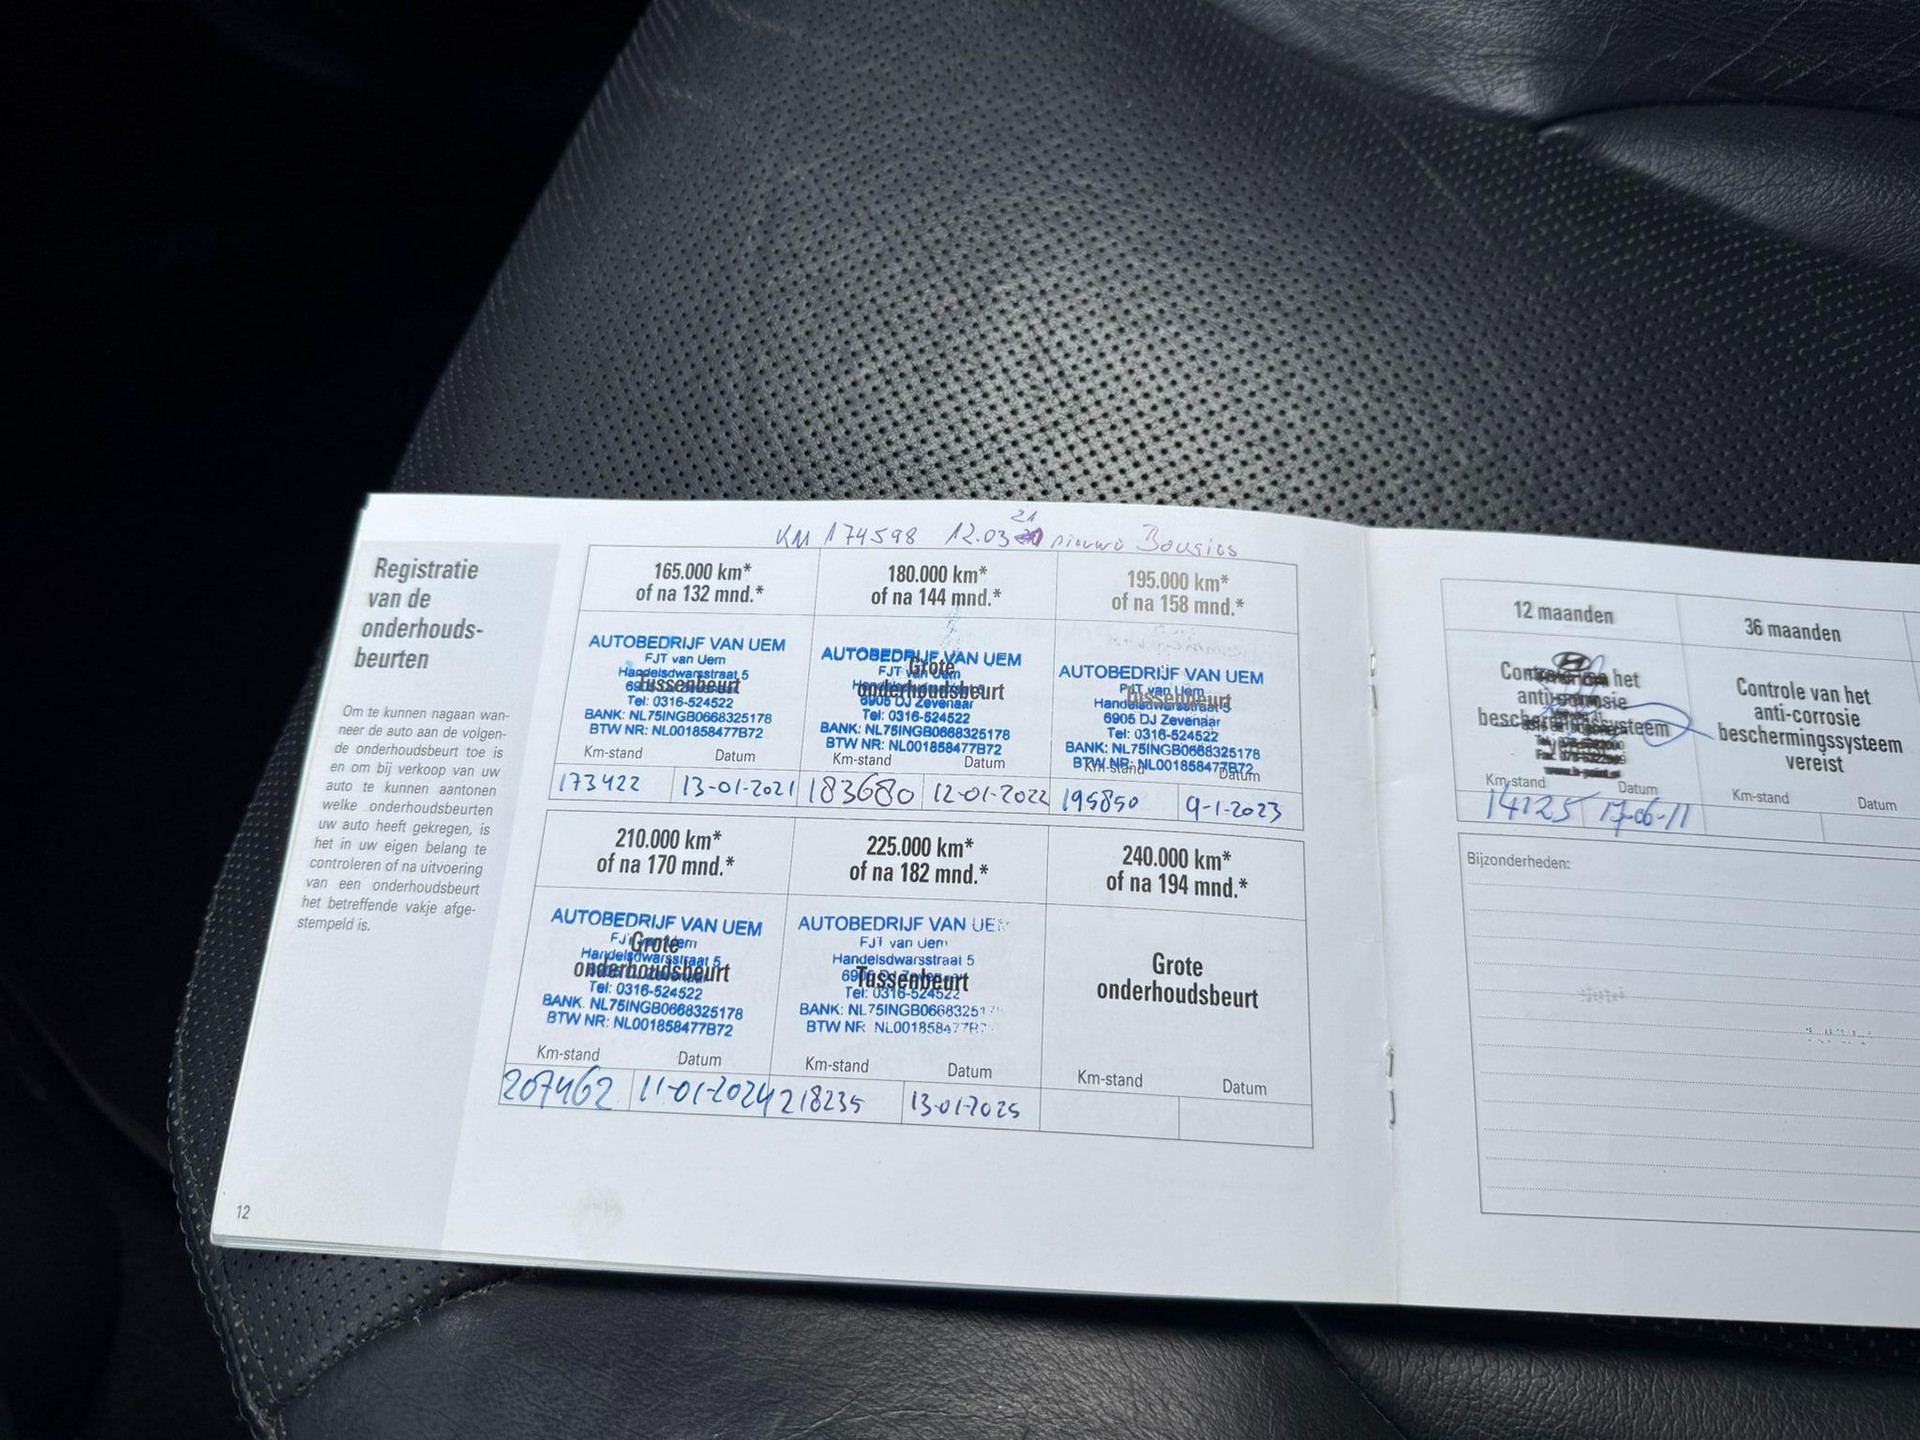 KM 174598 12.03 21 nieuwe Bougies
Registratie
van de
onderhouds-
beurten
Om te kunnen nagaan wan-
neer de auto aan de volgen-
de onderhoudsbeurt toe is
en om bij verkoop van uw
auto te kunnen aantonen
welke onderhoudsbeurten
uw auto heeft gekregen, is
het in uw eigen belang te
controleren of na uitvoering
van een onderhoudsbeurt
het betreffende vakje afge-
stempeld is.
12
165.000 km*
of na 132 mnd.*
AUTOBEDRIJF VAN UEM
FJT van Uem
Handelsdwarsstraat 5
Tussenbeurt
Tel: 0316-524522
BANK: NL75INGB0668325178
BTW NR: NL001858477B72
Km-stand Datum
173422 13-01-2021
180.000 km*
of na 144 mnd.*
AUTOBEDRIJF VAN UEM
Grote
FJT van Uem
onderhoudsbeurt
6905 DJ Zevenaar
Tel: 0316-524522
BANK: NL75INGB0668325178
BTW NR: NL001858477B72
Km-stand Datum
183680 12-01-2022
195.000 km*
of na 158 mnd.*
AUTOBEDRIJF VAN UEM
FJT van Uem
Tussenbeurt
Handelsdwarsstraat 5
6905 DJ Zevenaar
Tel: 0316-524522
BANK: NL75INGB0668325178
BTW NR: NL001858477B72
Km-stand Datum
195850 9-1-2023
210.000 km*
of na 170 mnd.*
AUTOBEDRIJF VAN UEM
FJT van Uem
Grote
Handelsdwarsstraat 5
onderhoudsbeurt
Tel: 0316-524522
BANK: NL75INGB0668325178
BTW NR: NL001858477B72
Km-stand Datum
207462 11-01-2024
225.000 km*
of na 182 mnd.*
AUTOBEDRIJF VAN UEM
FJT van Uem
Handelsdwarsstraat 5
6905 DJ Zevenaar
Tussenbeurt
Tel: 0316-524522
BANK: NL75INGB066832517
BTW NR NL001858477B7
Km-stand Datum
218235 13-01-2025
240.000 km*
of na 194 mnd.*
Grote
onderhoudsbeurt
Km-stand Datum
12 maanden
Controle van het
anti-corrosie
beschermingssysteem
Km-stand Datum
14125 17-06-11
36 maanden
Controle van het
anti-corrosie
beschermingssysteem
vereist
Km-stand Datum
Bijzonderheden: